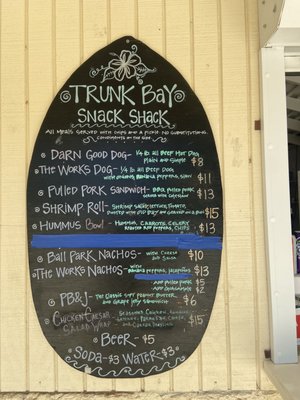 TRUNK BAY
SNACK SHACK
All Meals Served with chips and a pickle. No substitutions.
Condiments on the side
DARN GOOD DOG - 1/4 lb all Beef Hot Dog
Plain and Simple $8
THE WORKS DOG - 1/4 lb all Beef Dog
with onions, banana peppers, $11
PULLED PORK SANDWICH - BBQ pulled pork
served with coleslaw $13
SHRIMP ROLL - Shrimp salad, lettuce, tomato,
Dusted with old bay and served on a bun $15
HUMMUS Bowl - Hummus, Carrots, Celery
Roasted red peppers, chips $13
BALL PARK NACHOS - with cheese
and salsa $10
THE WORKS NACHOS - with
Banana peppers, jalapeños $13
Add pulled pork $5
Add guacamole $2
PB&J - The classic soft peanut butter
and grape jelly sandwich - $6
CHICKEN CAESAR
SALAD WRAP - Seasoned chicken, romaine
lettuce, parmesan cheese,
and caesar dressing $15
BEER - $5
SODA - $3 WATER - $3